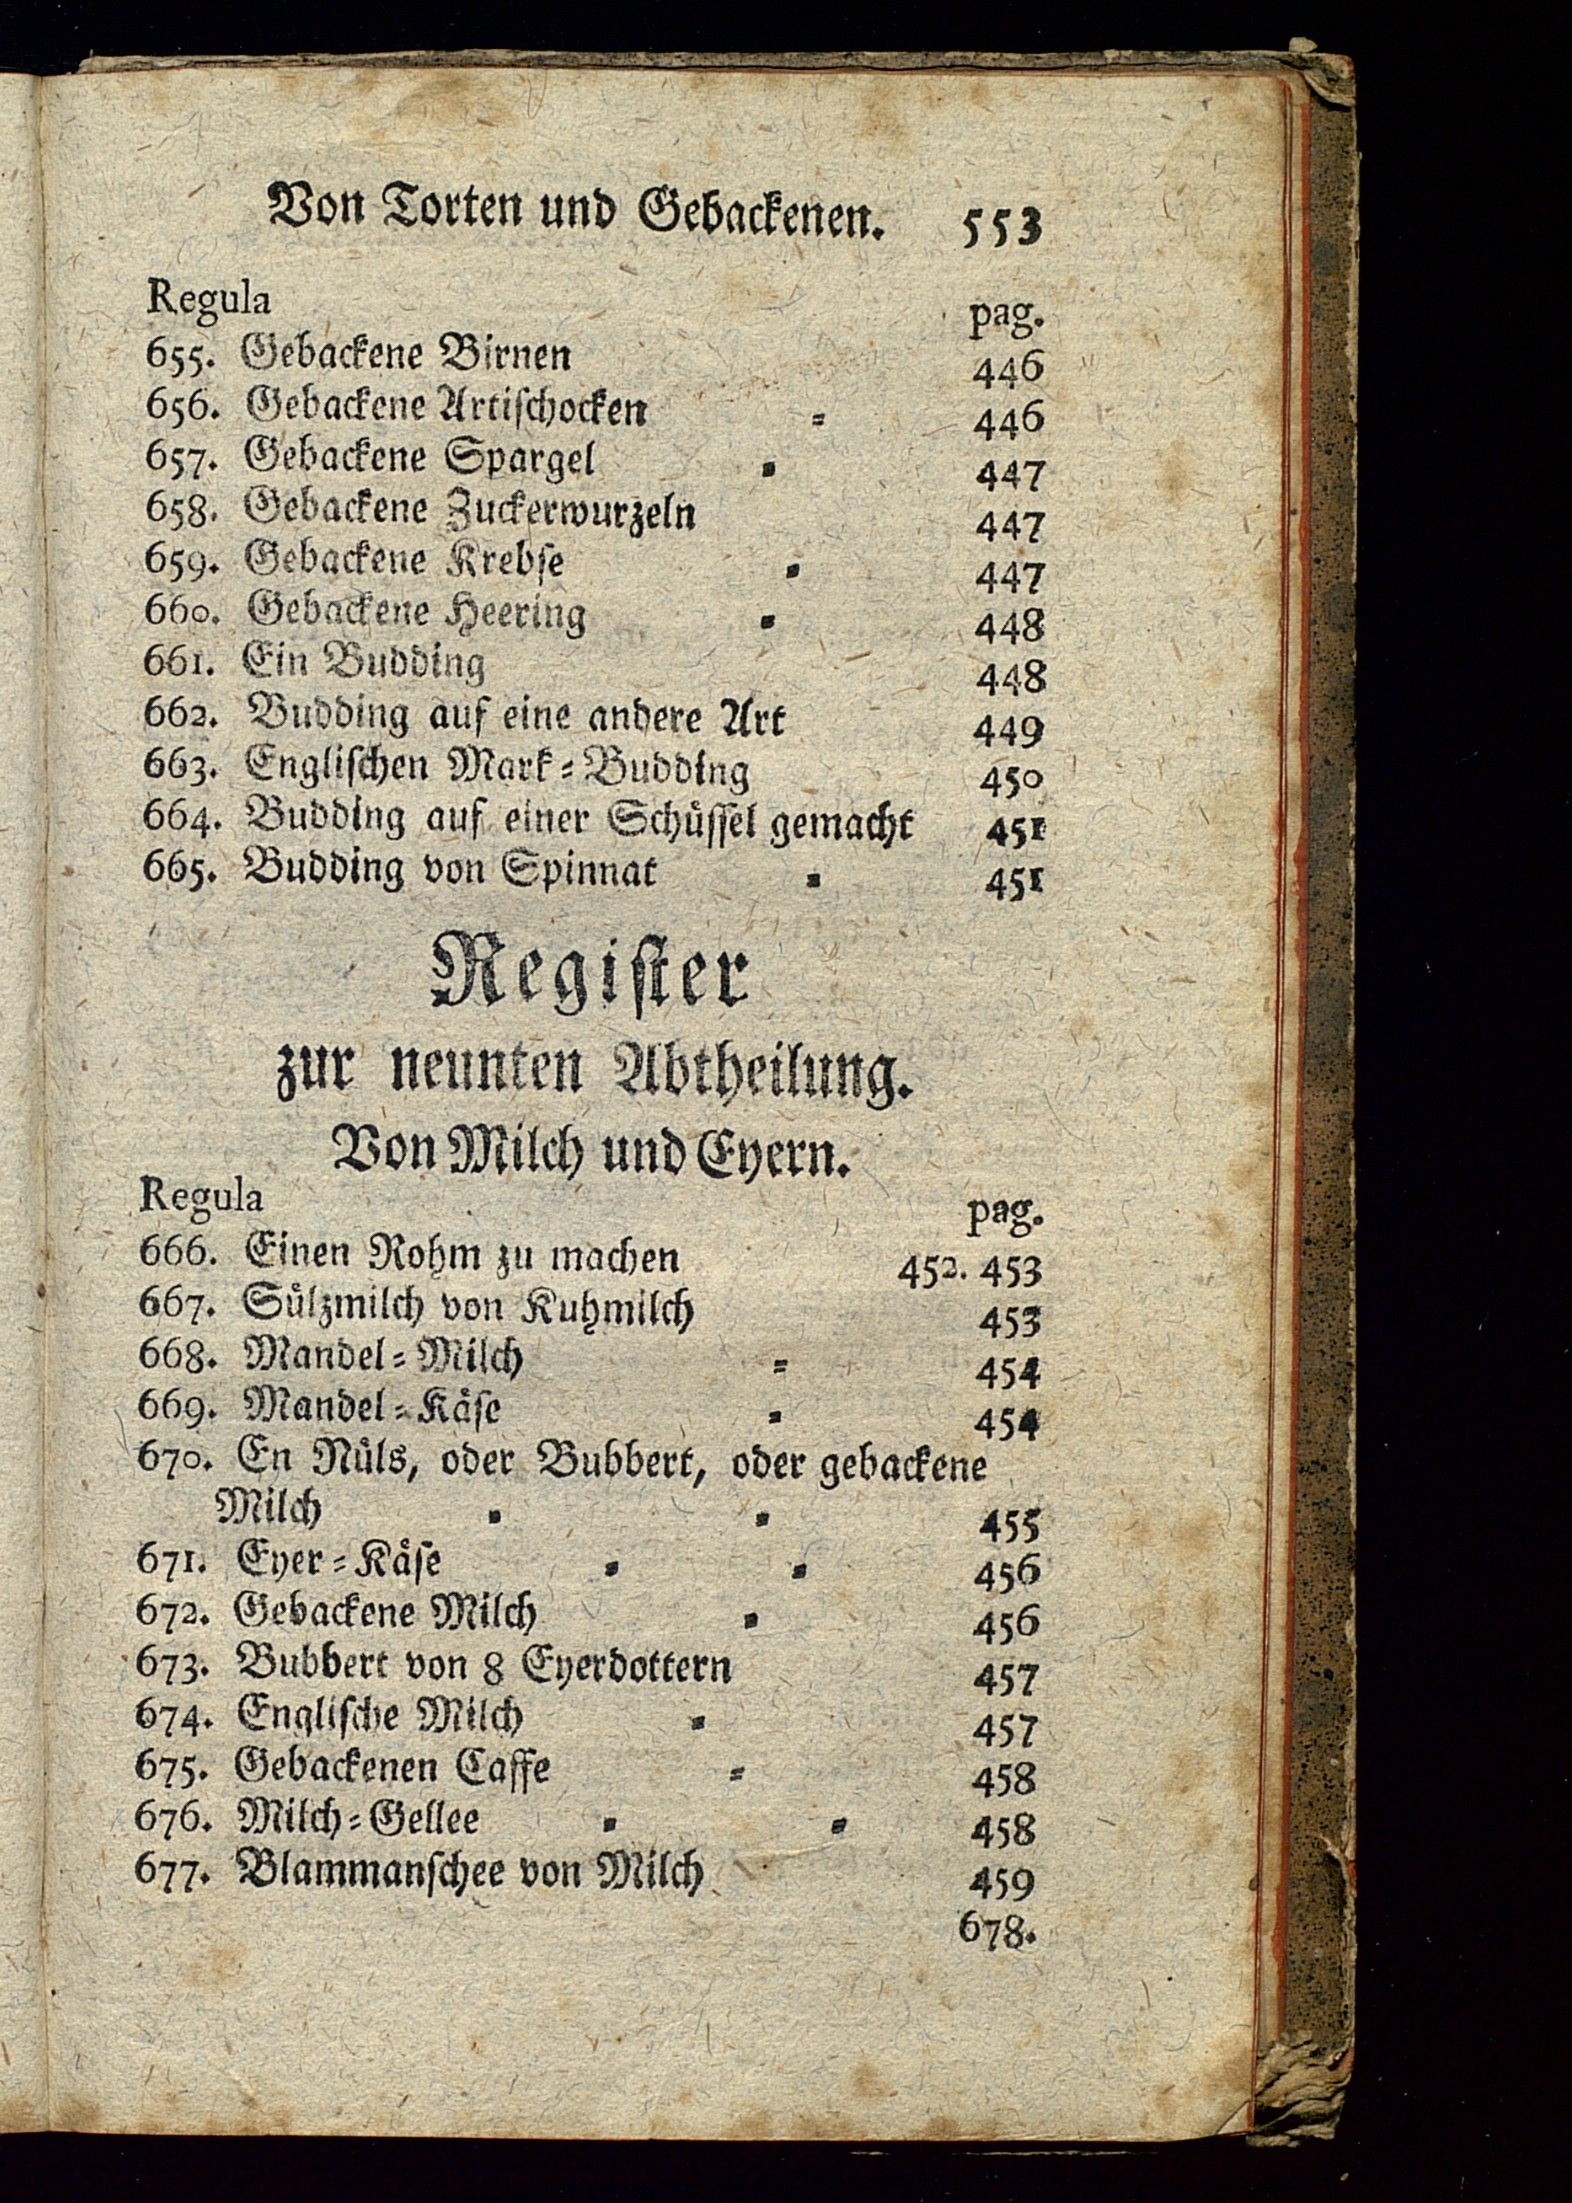 Von Torten und Gebackenen. 553
Regula pag.
655. Gebackene Birnen 446
656. Gebackene Artiſchocken = 446
657. Gebackene Spargel = 447
658. Gebackene Zuckerwurzeln 447
659. Gebackene Krebſe = 447
660. Gebackene Heering = 448
661. Ein Budding 448
662. Budding auf eine andere Art 449
663. Engliſchen Mark=Budding 450
664. Budding auf einer Schüſſel gemacht 451
665. Budding von Spinnat = 451
Regiſter
zur neunten Abtheilung.
Von Milch und Eyern.
Regula pag.
666. Einen Rohm zu machen 452. 453
667. Sülzmilch von Kuhmilch 453
668. Mandel=Milch = 454
669. Mandel=Käſe = 454
670. En Nüls, oder Bubbert, oder gebackene
Milch = = 455
671. Eyer=Käſe = = 456
672. Gebackene Milch = 456
673. Bubbert von 8 Eyerdottern 457
674. Engliſche Milch = 457
675. Gebackenen Caffe = 458
676. Milch=Gellee = = 458
677. Blammanſchee von Milch 459
678.